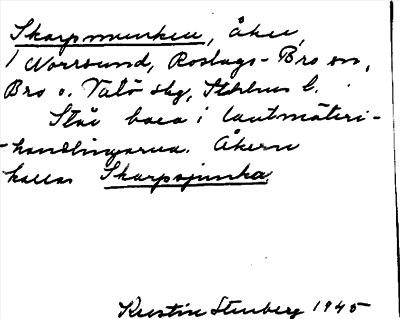 Skarpmunken, åker,
i Norrsund, Roslags-Bro sn,
Bro o. Vätö skg, Sthlms l.
Står bara i lantmäteri-
-handlingarna. Åkern
kallas Skarpsjunka.
Kerstin Stenberg 1945